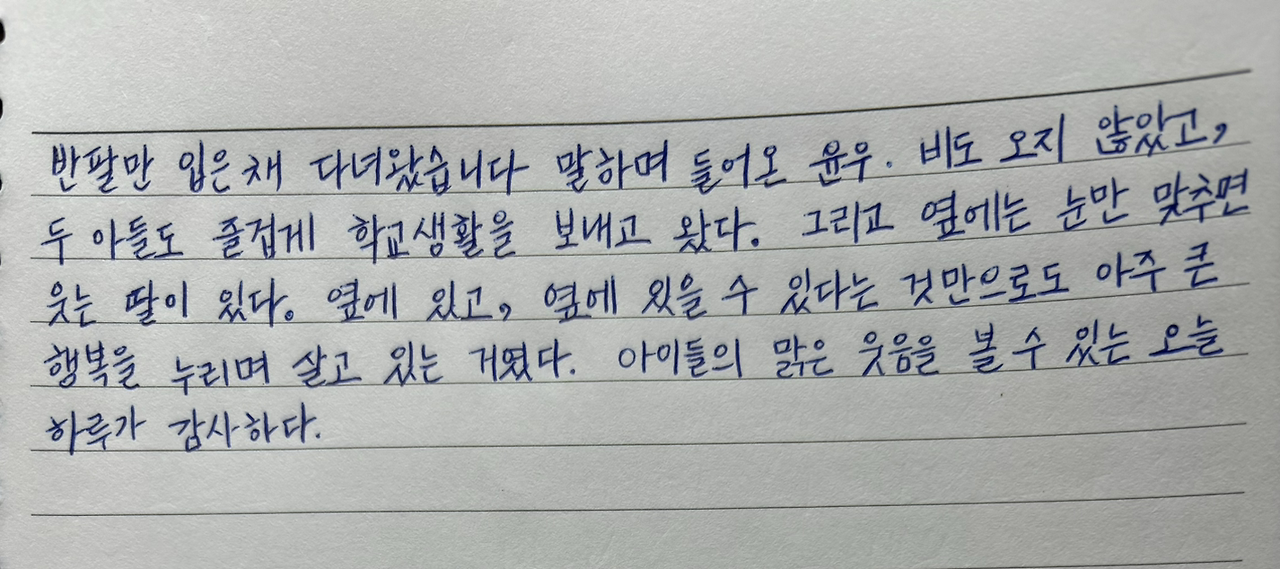 반팔만 입은채 다녀왔습니다 말하며 들어온 윤우. 비도 오지 않았고,
두 아들도 즐겁게 학교생활을 보내고 왔다. 그리고 옆에는 눈만 맞추면
웃는 딸이 있다. 옆에 있고, 옆에 있을 수 있다는 것만으로도 아주 큰
행복을 누리며 살고 있는 거였다. 아이들의 맑은 웃음을 볼 수 있는 오늘
하루가 감사하다.